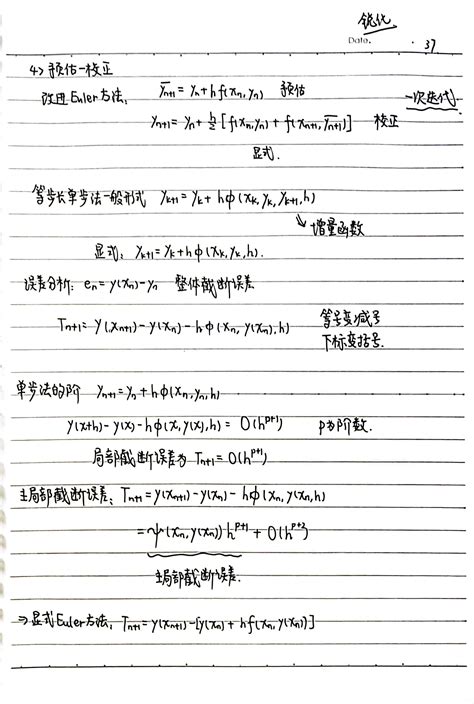 锐化
Date. 37
4> 预估-校正
改进Euler方法: \overline{y_{n+1}} = y_n + h f(x_n, y_n) 预估 一次迭代
y_{n+1} = y_n + \frac{h}{2} [f(x_n, y_n) + f(x_{n+1}, \overline{y_{n+1}})] 校正
显式.
等步长单步法一般形式 y_{k+1} = y_k + hφ(x_k, y_k, y_{k+1}, h)
↘ 增量函数
显式: y_{k+1} = y_k + hφ(x_k, y_k, h).
误差分析: e_n = y(x_n) - y_n 整体截断误差
T_{n+1} = y(x_{n+1}) - y(x_n) - hφ(x_n, y(x_n), h) 等号变减号
下标变括号.
单步法的阶 y_{n+1} = y_n + hφ(x_n, y_n, h)
y(x+h) - y(x) - hφ(x, y(x), h) = O(h^{p+1}) p为阶数.
局部截断误差为 T_{n+1} = O(h^{p+1})
主局部截断误差: T_{n+1} = y(x_{n+1}) - y(x_n) - hφ(x_n, y(x_n), h)
= ψ(x_n, y(x_n)) h^{p+1} + O(h^{p+2})
主局部截断误差.
⇒ 显式Euler方法: T_{n+1} = y(x_{n+1}) - [y(x_n) + h f(x_n, y(x_n))]